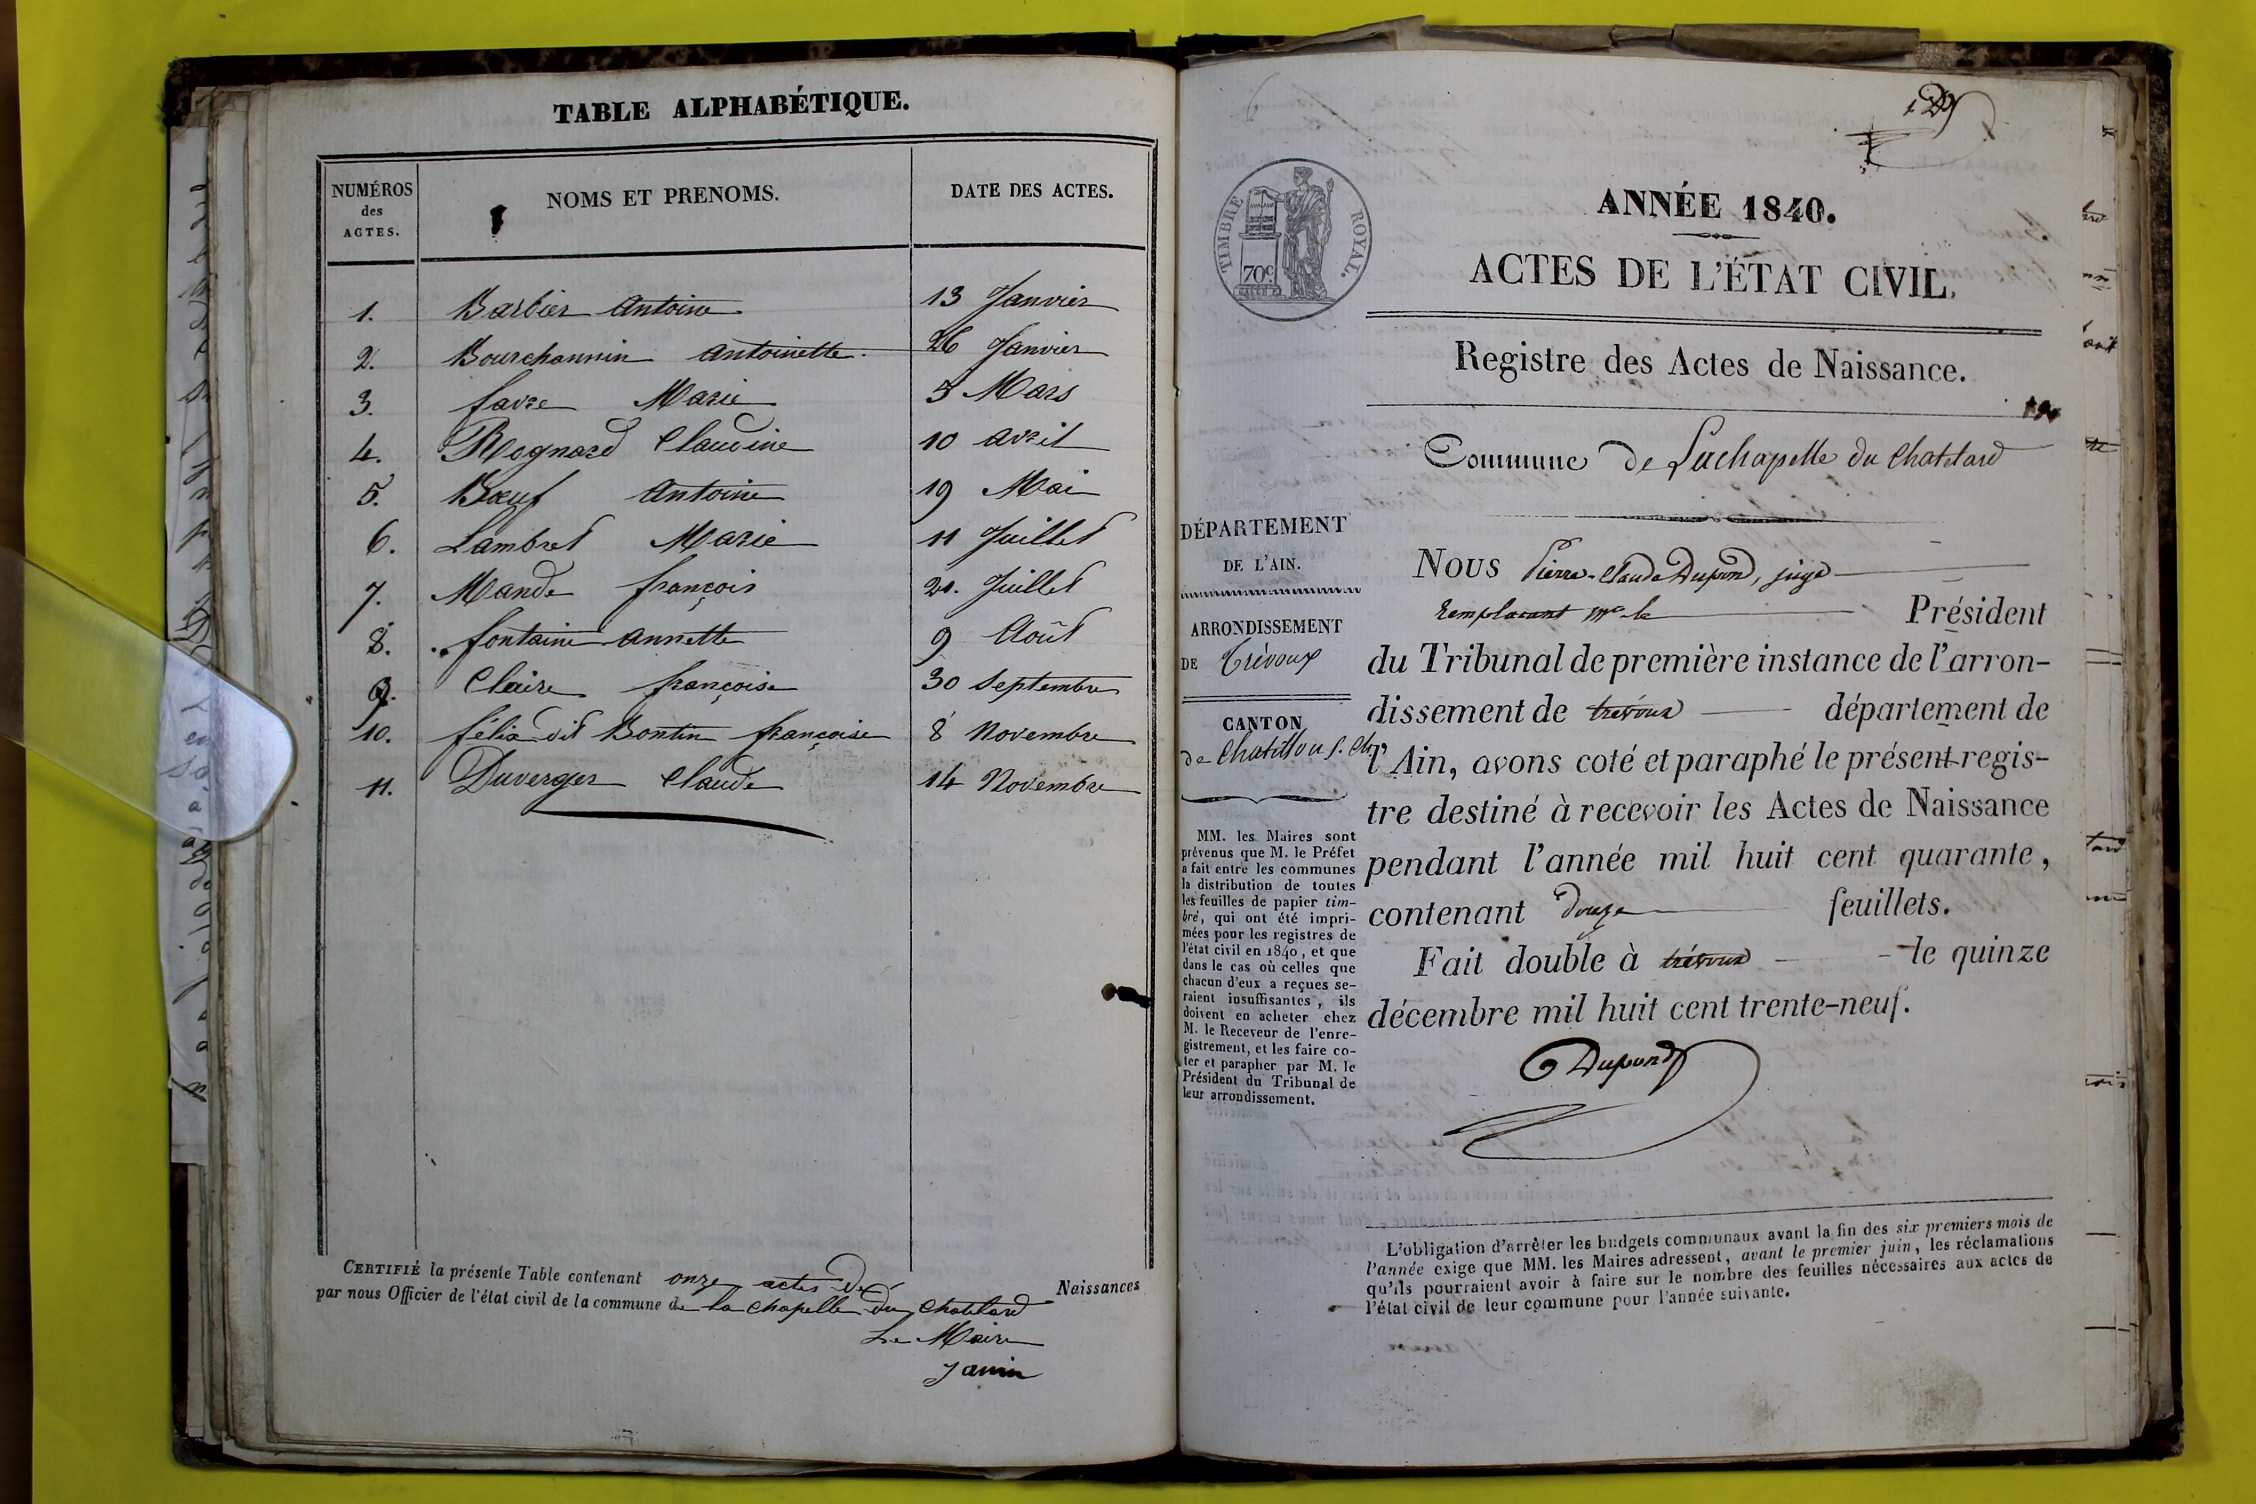 TABLE ALPHABÉTIQUE.
NUMÉROS
des
ACTES.
NOMS ET PRENOMS.
DATE DES ACTES.
1. Barbier Antoine 13 Janvier
2. Bourchannin Antoinette. 26 Janvier
3. favre Marie 5 Mars
4. Rognard Claudine 10 avril
5. Bœuf Antoine 19 Mai
6. Lambret Marie 11 Juillet
7. Mande françois 21. Juillet
8. fontaine annette 9 Août
9. Claire françoise 30 Septembre
10. félix dit Bontin françoise 8 Novembre
11. Duverger Claude 14 Novembre
CERTIFIÉ la présente Table contenant onze actes de Naissances
par nous Officier de l'état civil de la commune de la chapelle du chatelard
Le Maire
Janin
TIMBRE ROYAL.
70 c.
ANNÉE 1840.
ACTES DE L'ÉTAT CIVIL.
Registre des Actes de Naissance.
Commune de Lachapelle du Chatelard
DÉPARTEMENT
DE L'AIN.
ARRONDISSEMENT
DE Trévoux
CANTON
de Chatillon s. Ch.
MM. les Maires sont
prévenus que M. le Préfet
a fait entre les communes
la distribution de toutes
les feuilles de papier tim-
bré, qui ont été impri-
mées pour les registres de
l'état civil en 1840, et que
dans le cas où celles que
chacun d'eux a reçues se-
raient insuffisantes, ils
doivent en acheter chez
M. le Receveur de l'enre-
gistrement, et les faire co-
ter et parapher par M. le
Président du Tribunal de
leur arrondissement.
NOUS Pierre-Claude Dupond, juge
remplacant Mr le Président
du Tribunal de première instance de l'arron-
dissement de trévoux département de
l'Ain, avons coté et paraphé le présent regis-
tre destiné à recevoir les Actes de Naissance
pendant l'année mil huit cent quarante,
contenant douze feuillets.
Fait double à trévoux le quinze
décembre mil huit cent trente-neuf.
Dupond
L'obligation d'arrêter les budgets communaux avant la fin des six premiers mois de
l'année exige que MM. les Maires adressent, avant le premier juin, les réclamations
qu'ils pourraient avoir à faire sur le nombre des feuilles nécessaires aux actes de
l'état civil de leur commune pour l'année suivante.